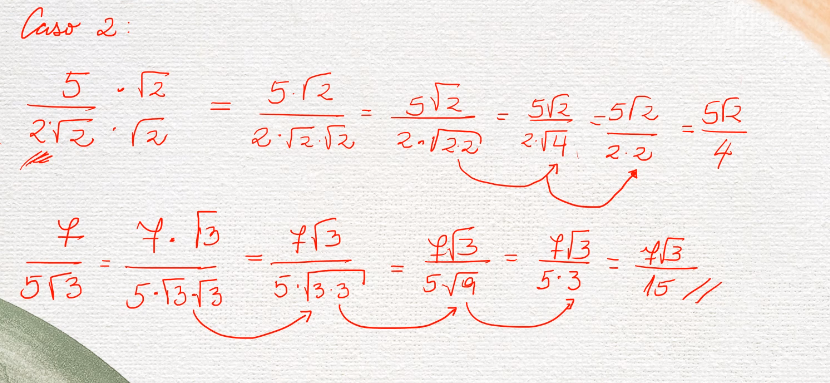 Caso 2:
5/(2·√2) · √2/√2 = (5·√2)/(2·√2·√2) = (5√2)/(2·√(2·2)) = (5√2)/(2·√4) = (5√2)/(2·2) = (5√2)/4
7/(5√3) = (7·√3)/(5·√3·√3) = (7√3)/(5·√(3·3)) = (7√3)/(5√9) = (7√3)/(5·3) = (7√3)/15 //